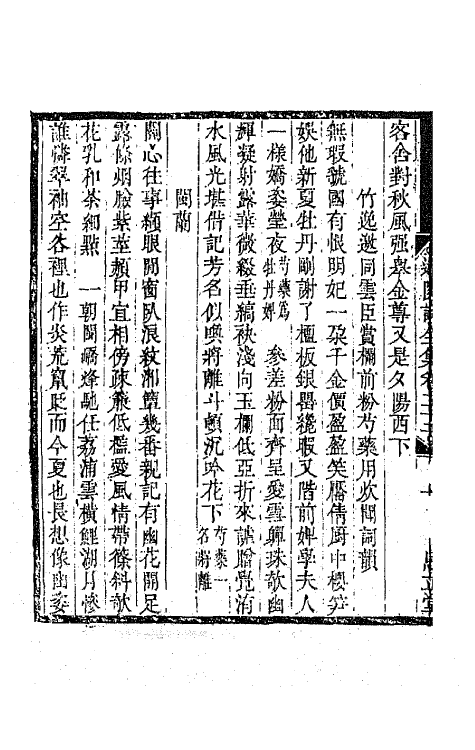 客舍對秋風强舉金尊又是夕陽西下
竹逸邀同雲臣賞欄前粉芍藥用炊聞詞韻
無瑕虢國有恨明妃一朶千金價盈盈笑靨倩厨中櫻笋
娱他新夏牡丹剛謝了檀板銀罂纔暇又階前婢學夫人
一様嬌姿瑩夜芍藥為牡丹婢 參差粉面齊呈愛雲鬟珠欹幽
輝凝射露華微綴垂縞袂淺向玉欄低亞折來謔贈覓洧
水風光堪借記芳名似喚將離斗頓沉吟花下芍藥一名將離
閩蘭
關心往事纈眼閒窗臥浪紋湘簟幾番親記有幽花開足
露條烟臉紫莖頳甲宜相傍疎簾低檻愛風情帶篠斜欹
花乳和茶細點 一朝閩嶠烽馳任荔浦雲橫鯉湖月慘
誰擣翠袖空谷裡也作炎荒竄貶而今夏也長想像幽委